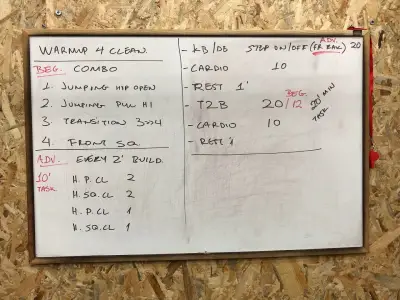 WARMUP 4 CLEAN.
BEG. COMBO
1. JUMPING HIP OPEN
2. JUMPING PULL HI
3. TRANSITION 3>>4
4. FRONT SQ.
ADV. EVERY 2' BUILD.
10' TASK
H.P.CL 2
H.SQ.CL 2
H.P.CL 1
H.SQ.CL 1
- KB/DB STEP ON/OFF (FR RACK) 20
ADV.
- CARDIO 10
- REST 1'
BEG.
- T2B 20/12
20' MIN TASK
- CARDIO 10
- REST 1'